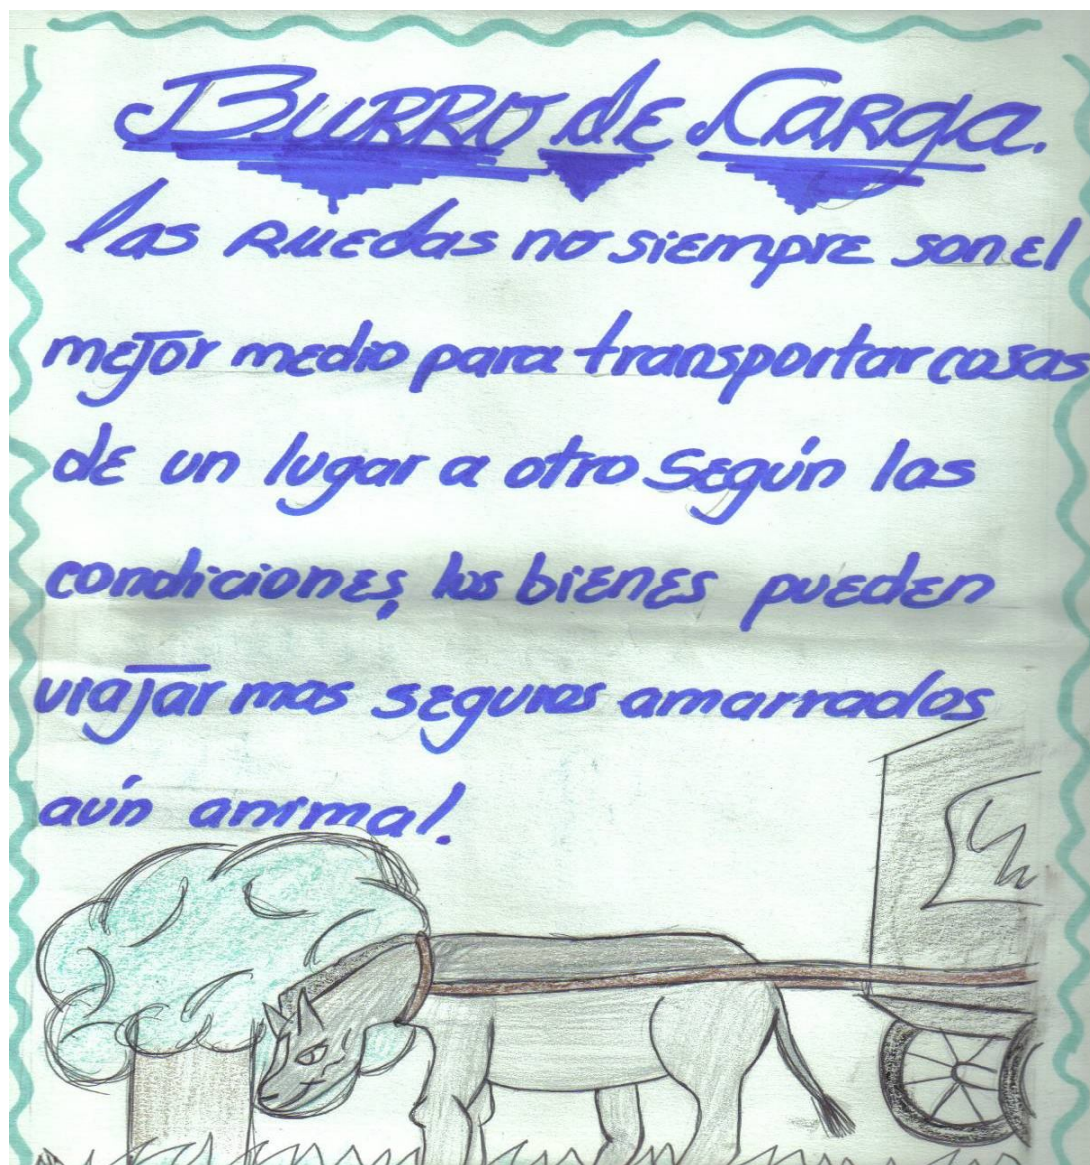 Burro de Carga.
las ruedas no siempre son el
mejor medio para transportar cosas
de un lugar a otro según las
condiciones, los bienes pueden
viajar mas seguros amarrados
aún animal.